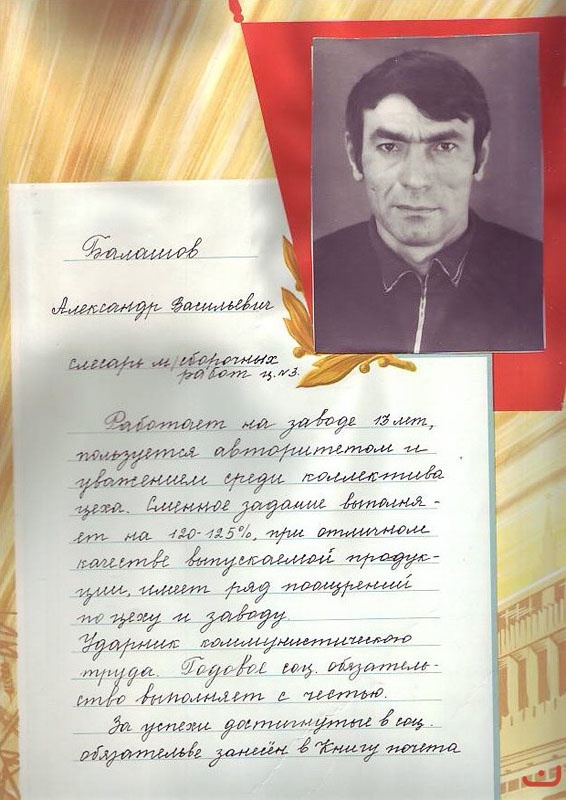 Балашов
Александр Васильевич
слесарь м/сборочных
работ ц.№3.
Работает на заводе 13 лет,
пользуется авторитетом и
уважением среди коллектива
цеха. Сменное задание выполня-
ет на 120-125%, при отличном
качестве выпускаемой продук-
ции, имеет ряд поощрений
по цеху и заводу.
Ударник коммунистического
труда. Годовое соц. обязатель-
ство выполняет с честью.
За успехи достигнутые в соц.
обязательве занесён в Книгу почета